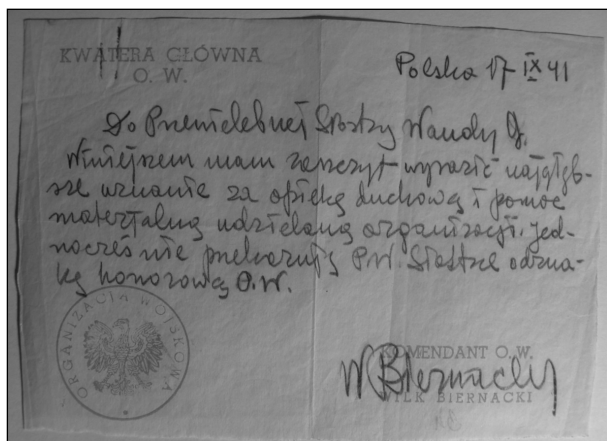 KWATERA GŁÓWNA
O. W.
Polska 17 IX 41
Do Przewielebnej Siostry Wandy G.
Niniejszem mam zaszczyt wyrazić najgłęb-
sze uznanie za opiekę duchową i pomoc
materjalną udzielaną organizacji. Jed-
nocześnie przekazuję P.W. Siostrze odzna-
kę honorową O.W.
ORGANIZACJA WOJSKOWA
KOMENDANT O. W.
W Biernacki
WILK BIERNACKI